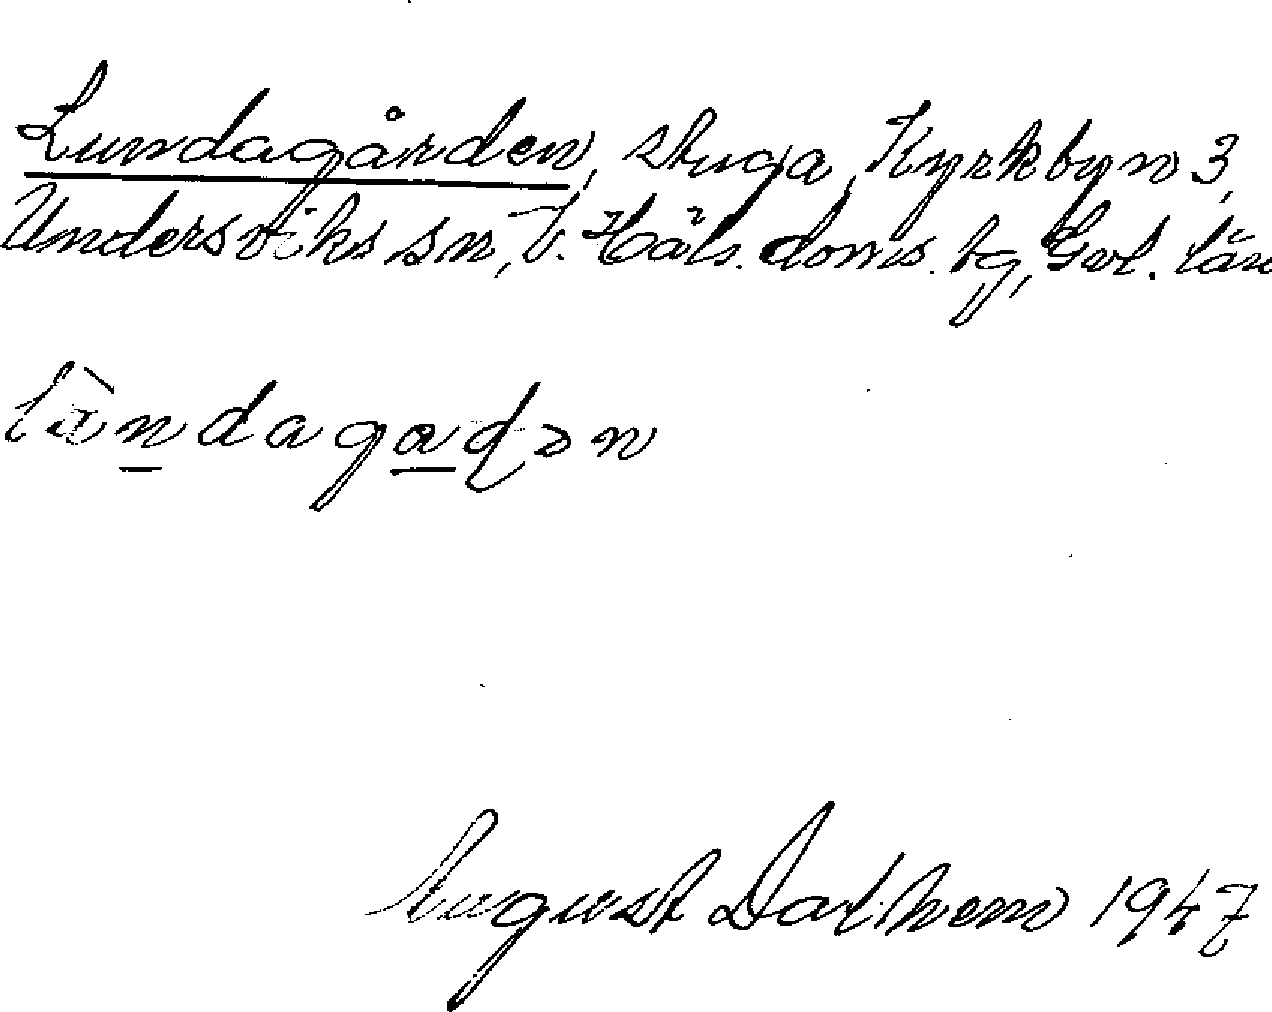 Lundagården, stuga, Kyrkbyn 3,
Undersviks sn, V. Häls. doms. bg, Gvl. län
August Dalhem 1947